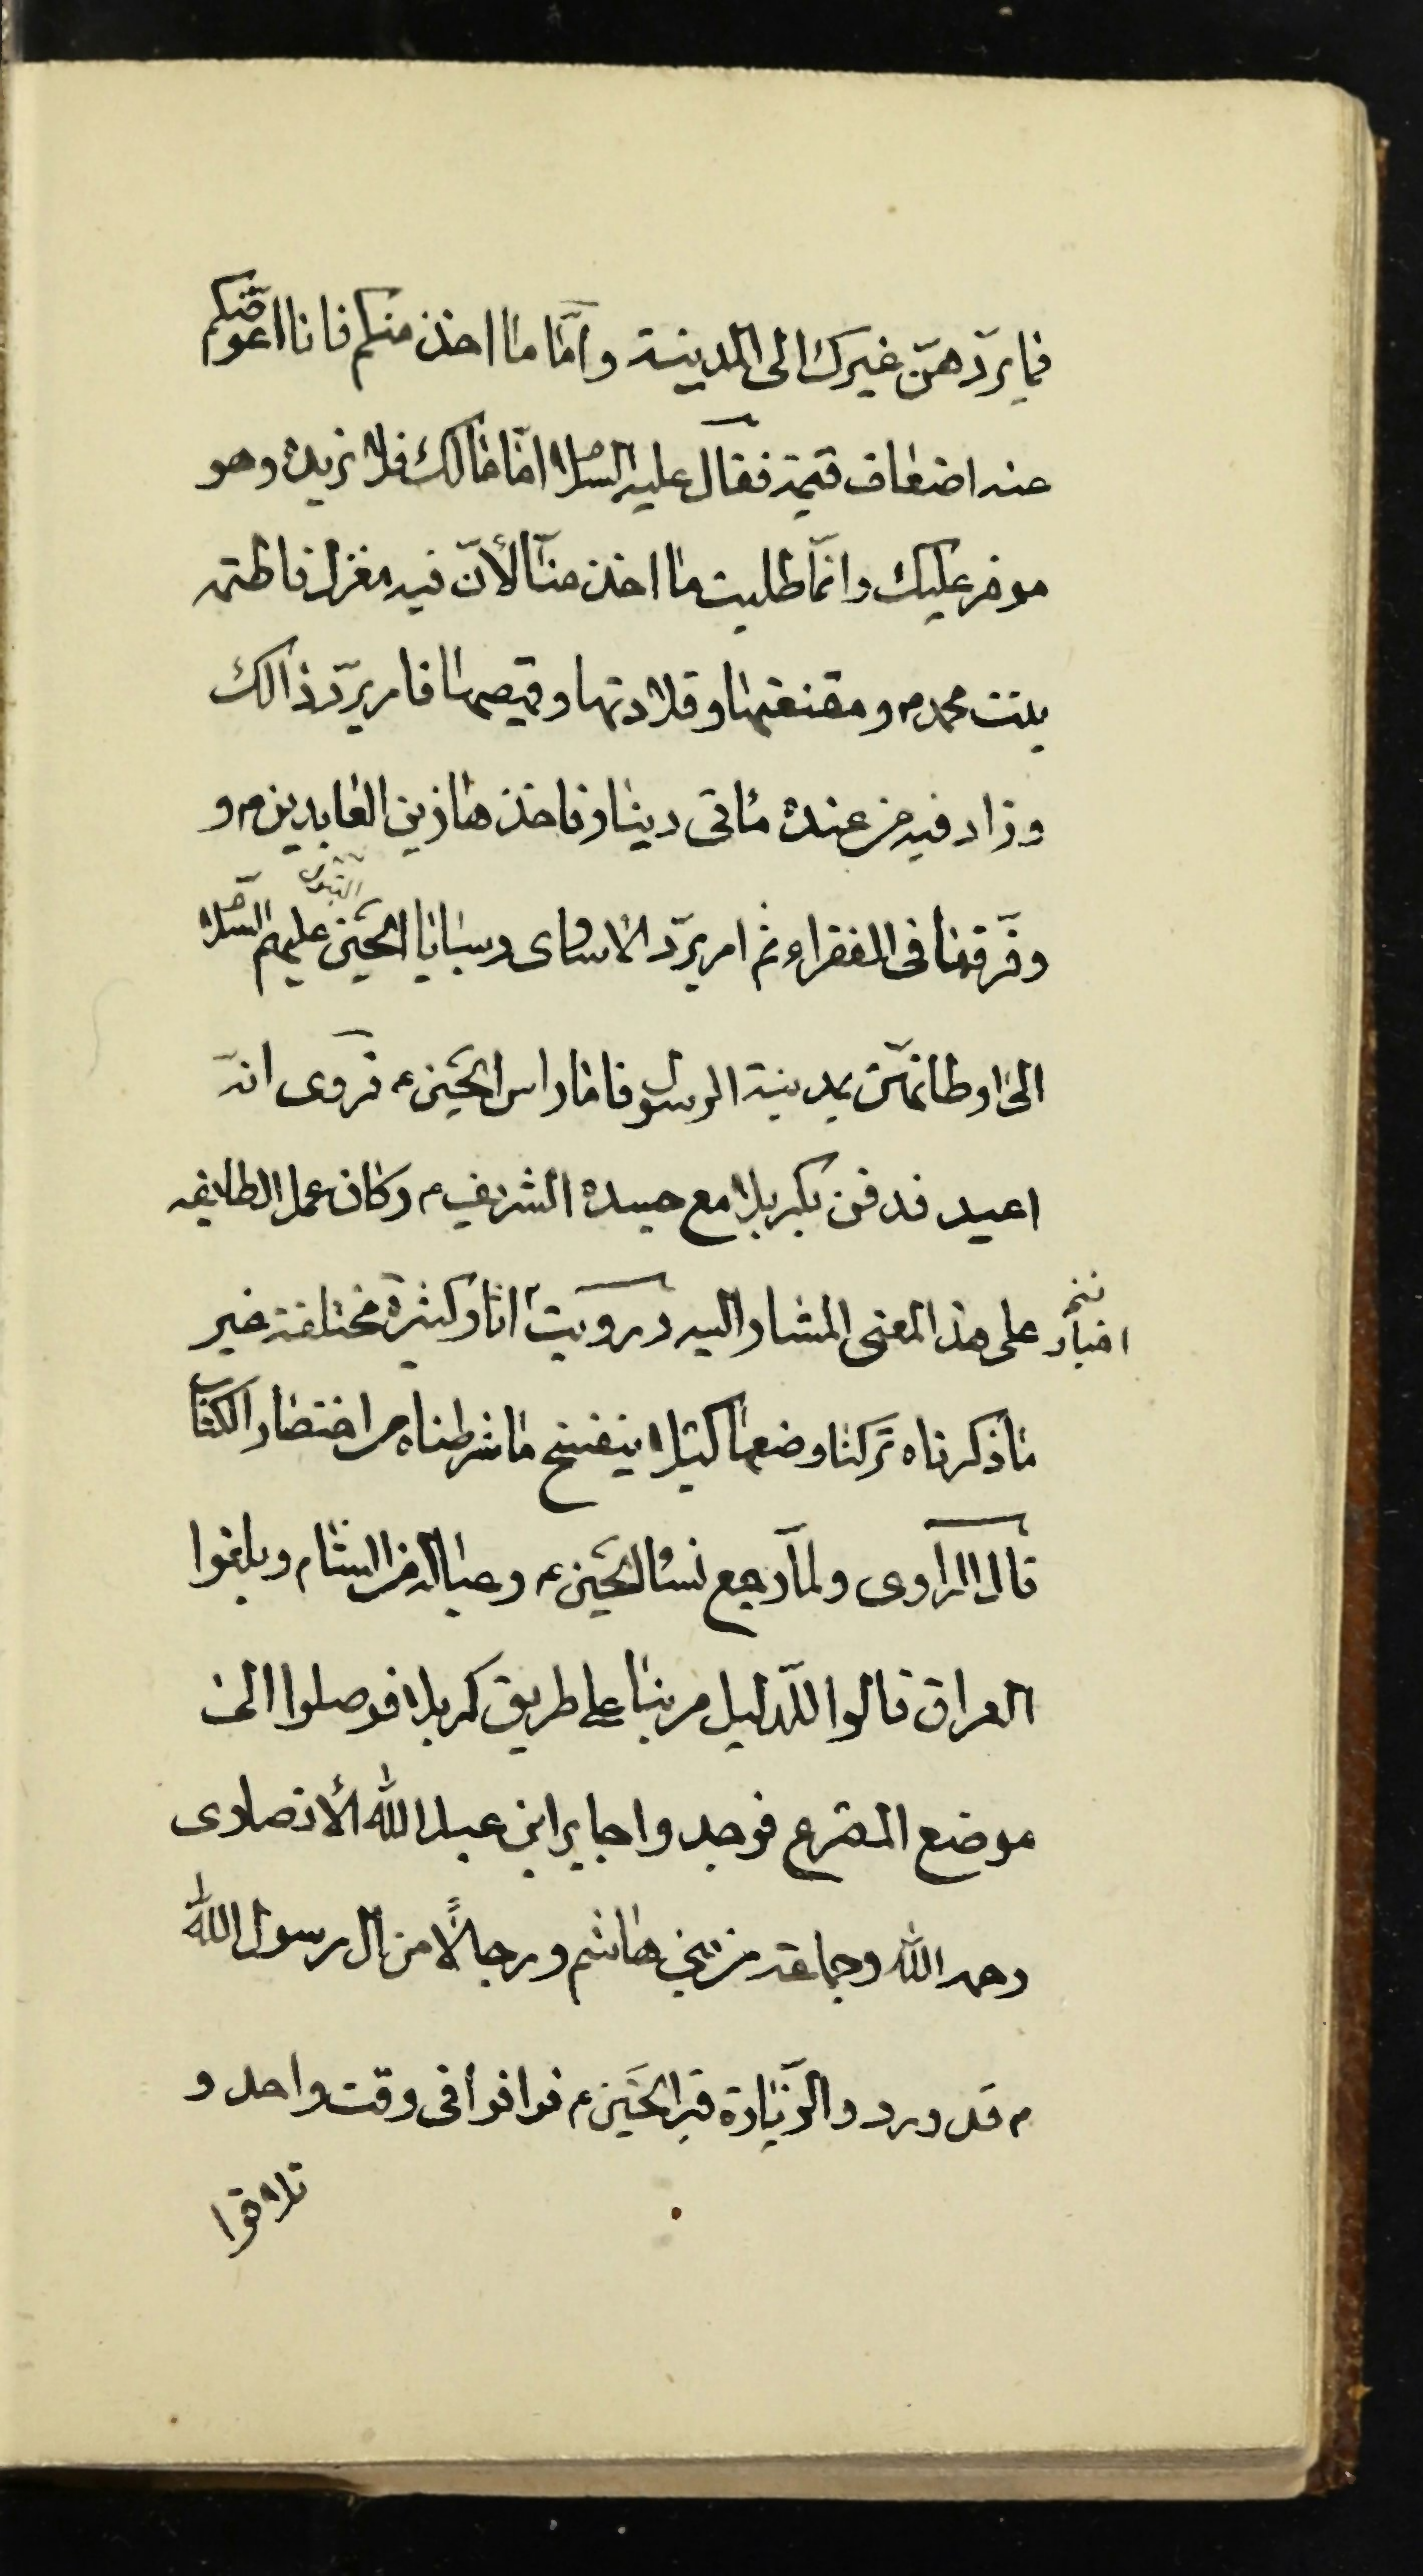 فما يردّهنّ غيرك الى المدينة وامّا ما اخذ منكم فانا اعوّضكم
عنه اضعاف قيمة فقال عليه السلام امّا مالك فلا نريده وهو
موفر عليك وانمّا طلبت ما اخذ منّا لأنّ فيه مغزل فاطمة
بنت محمد م ومقنعتها وقلادتها وقميصها فامر بردّ ذالك
وزاد فيه من عنده مأتى دينار فاخذها زين العابدين م و
وفرّقها فى الفقراء ثم امر بردّ الاسارى وسبايا الحسين عليهم السلام
البتول
الى اوطانهنّ بمدينة الرسول فاما راس الحسين ع فروى انه
اعيد فدفن بكربلا مع جسده الشريف ع وكان عمل الطايفه
على هذا المعنى المشار اليه ورويت اثار كثيرة مختلفة غير
اخبار
ما ذكرناه تركنا وضعها كيلا ينفسخ ما شرطناه من اختصار الكتاب
قال الراوى ولمّا رجع نساء الحسين ع وعياله من الشام وبلغوا
العراق قالوا للدّليل مر بنا على طريق كربلا فوصلوا الى
موضع المصرع فوجدوا جابر ابن عبد الله الأنصارى
رحمه الله وجماعة من بنى هاشم ورجالاً من ال رسول الله
م قد وردوا لزّيارة قبر الحسين ع فوافوا فى وقت واحد و
تلاقوا